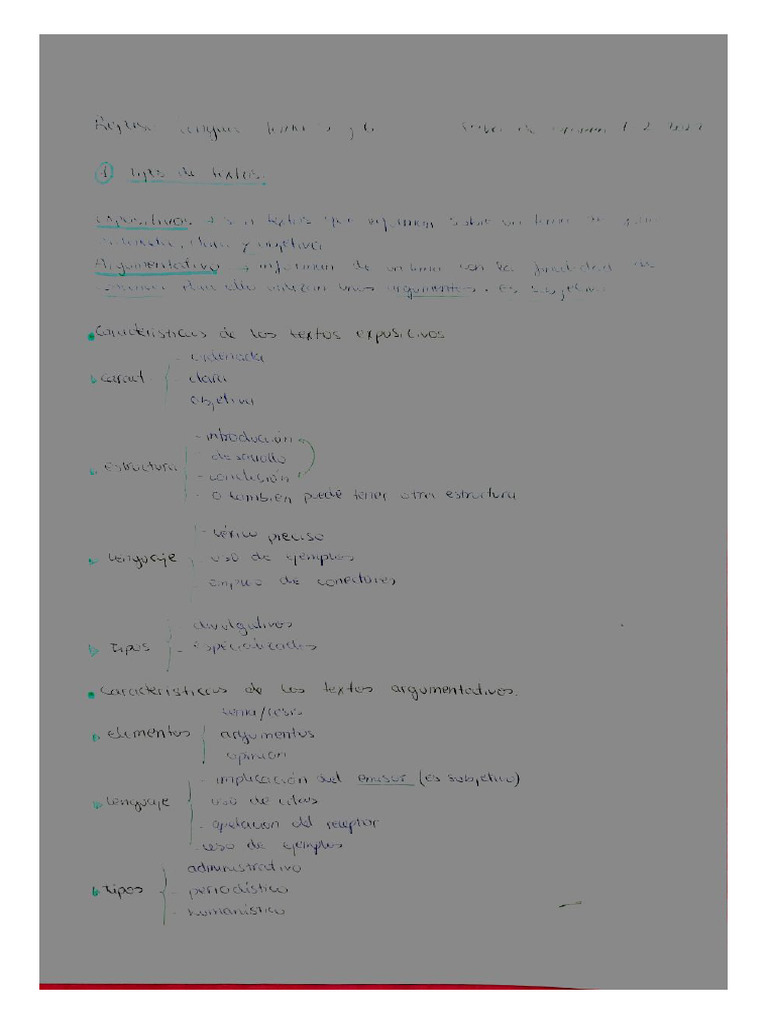 Repaso Lengua Tema 5 y 6
① Tipos de textos.
Expositivos → son textos que informan sobre un tema de
ordenada, clara y objetiva
Argumentativo → informan de un tema con la finalidad de
convencer para ello utilizan unos argumentos. es subjetivo
• Características de los textos expositivos
- ordenada
caract - clara
objetiva
- introducción
- desarrollo
estructura - conclusión
- o también puede tener otra estructura
- léxico preciso
lenguaje uso de ejemplos
empleo de conectores
divulgativos
tipos - especializados
• características de los textos argumentativos.
tema/tesis
elementos argumentos
opinión
- implicación del emisor (es subjetivo)
lenguaje uso de citas
- apelación del receptor
- uso de ejemplos
administrativo
tipos - periodístico
- humanístico